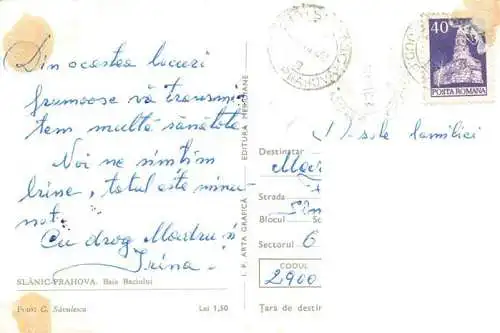 Din aceste locuri
frumoase vă transmi-
tem multă sănătate
Noi ne simțim
bine, totul este minu-
nat.
Cu drag
Irina
SLĂNIC-PRAHOVA. Baia Baciului
Foto: C. Săvulescu
Lei 1,50
I. P. ARTA GRAFICĂ
EDITURA MERIDIANE
40
POSTA ROMANA
PRAHOVA
familiei
Destinatar
Strada
Blocul Sc
Sectorul 6
CODUL
2900
Țara de destin